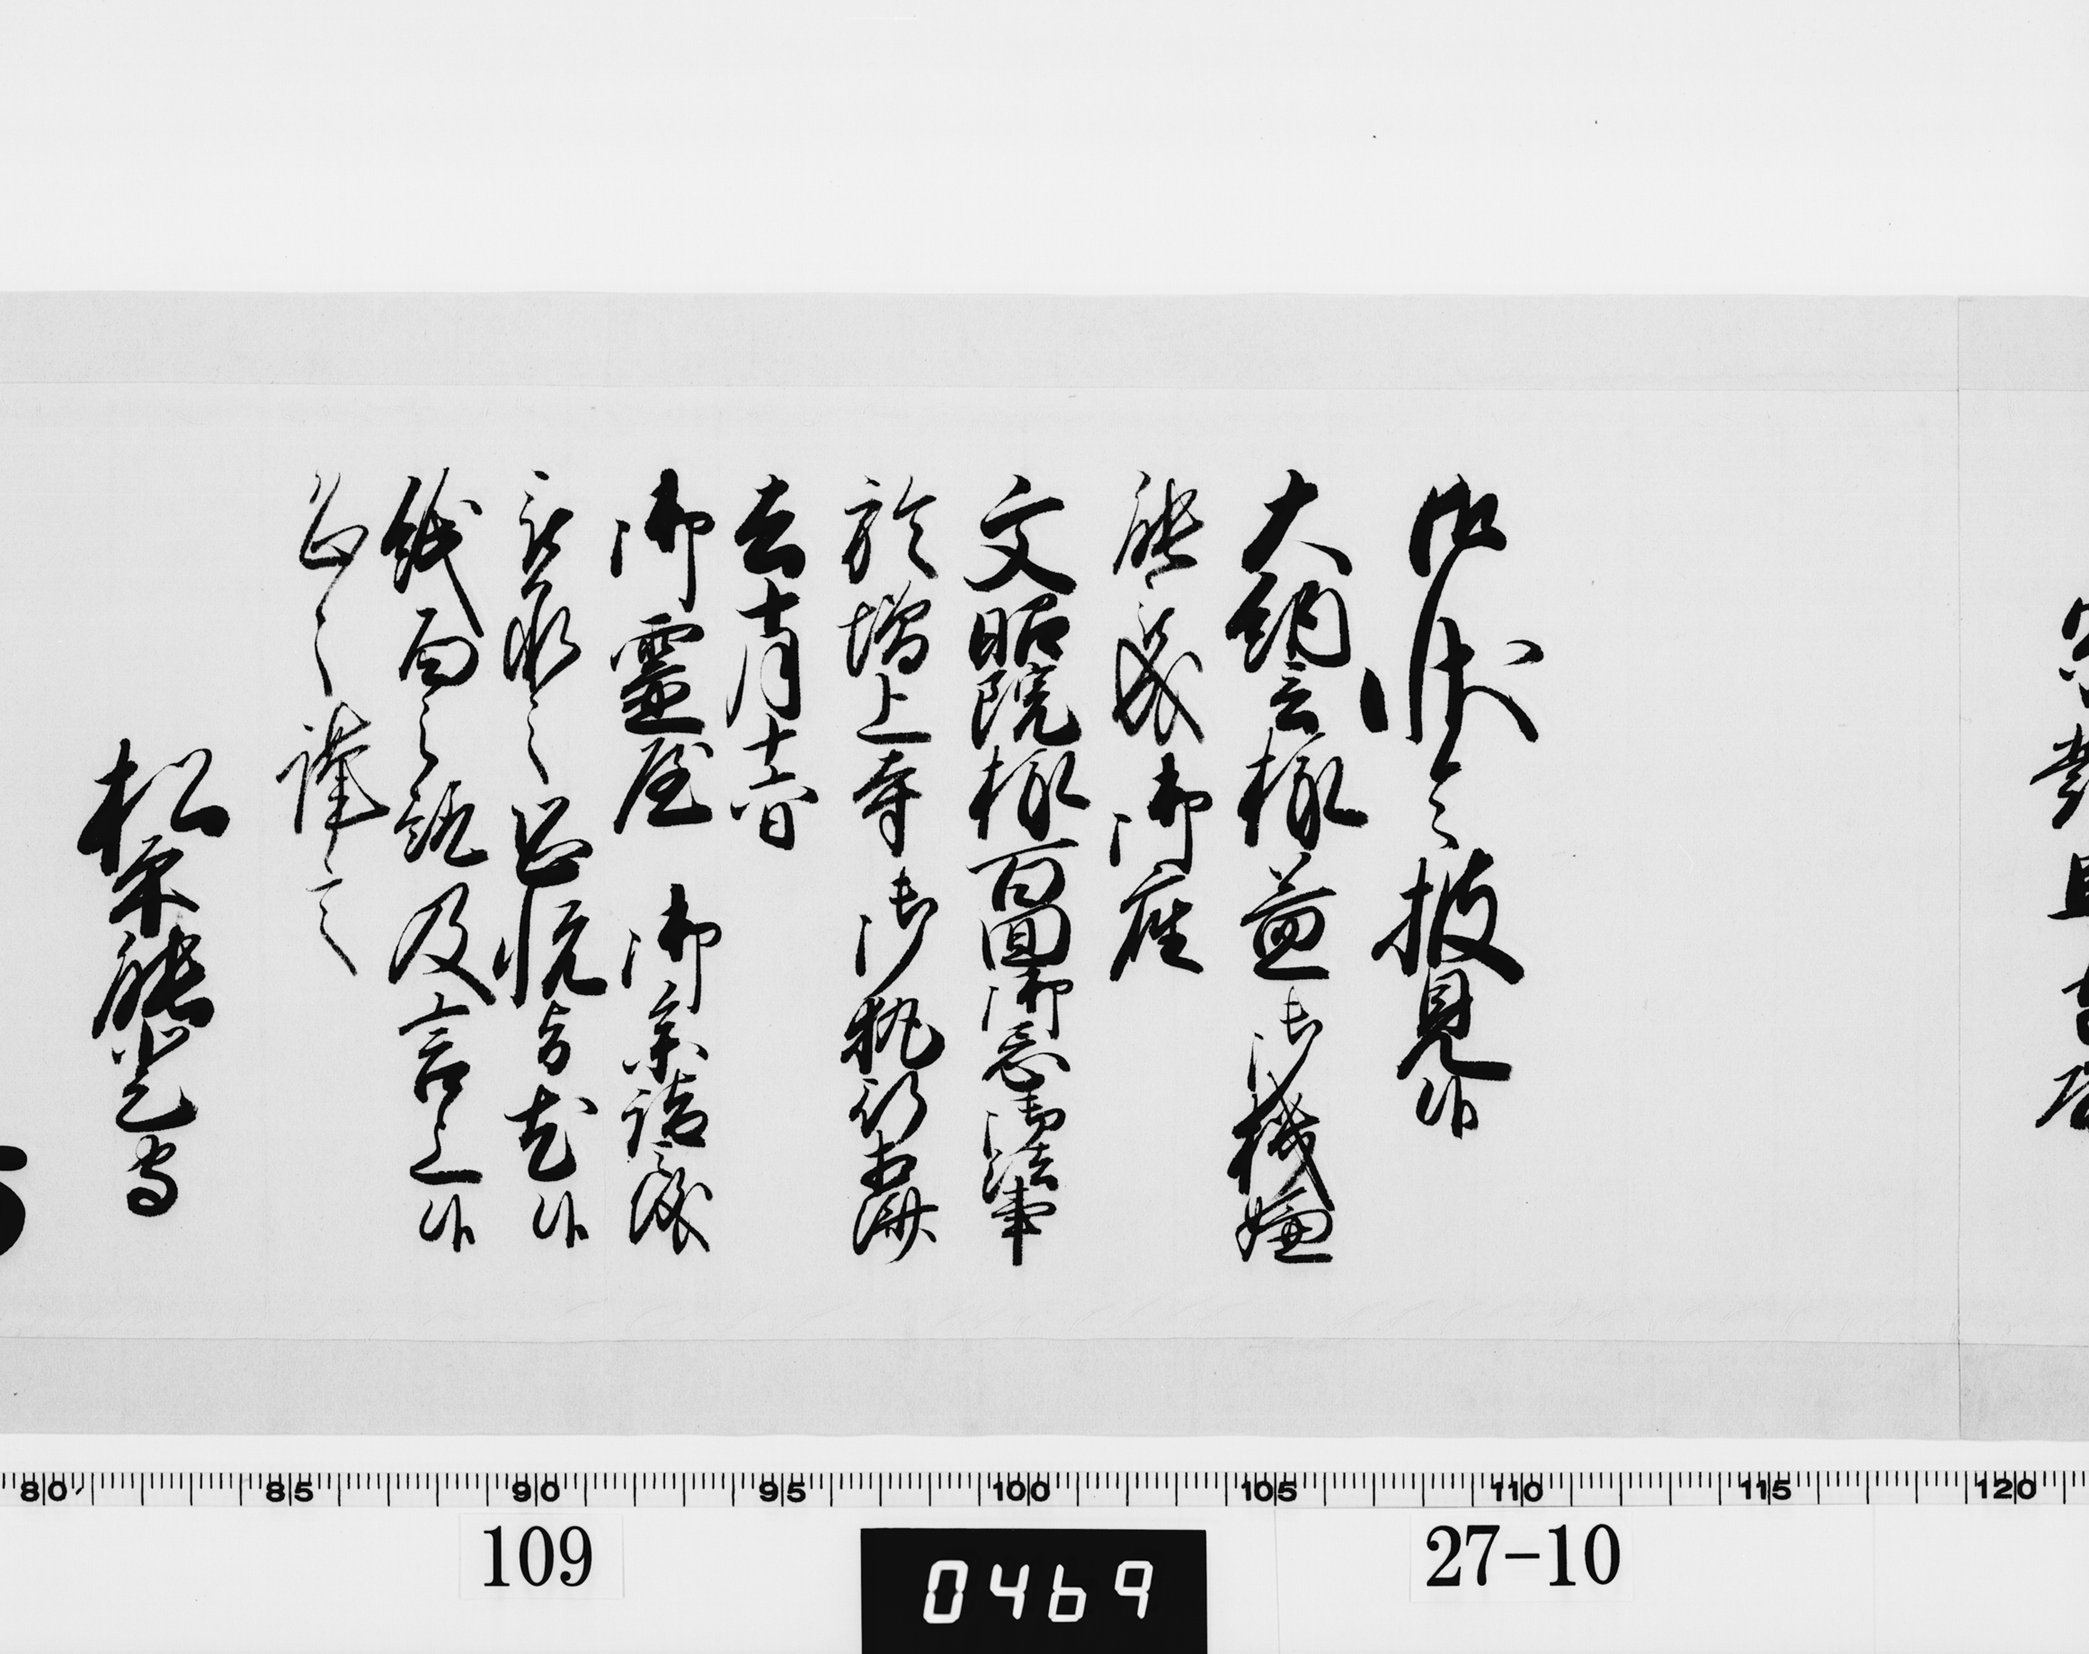 御状令披見候
大納言様益御機嫌
能被成御座
文昭院様百回御忌御法事
於増上寺御執行相済
去十月十六日
御霊屋 御参詣之段
被承之恐悦旨尤候
紙面之趣及言上候
恐々謹言
松平能登守
109
0469
27-10
80 85 90 95 100 105 110 115 120